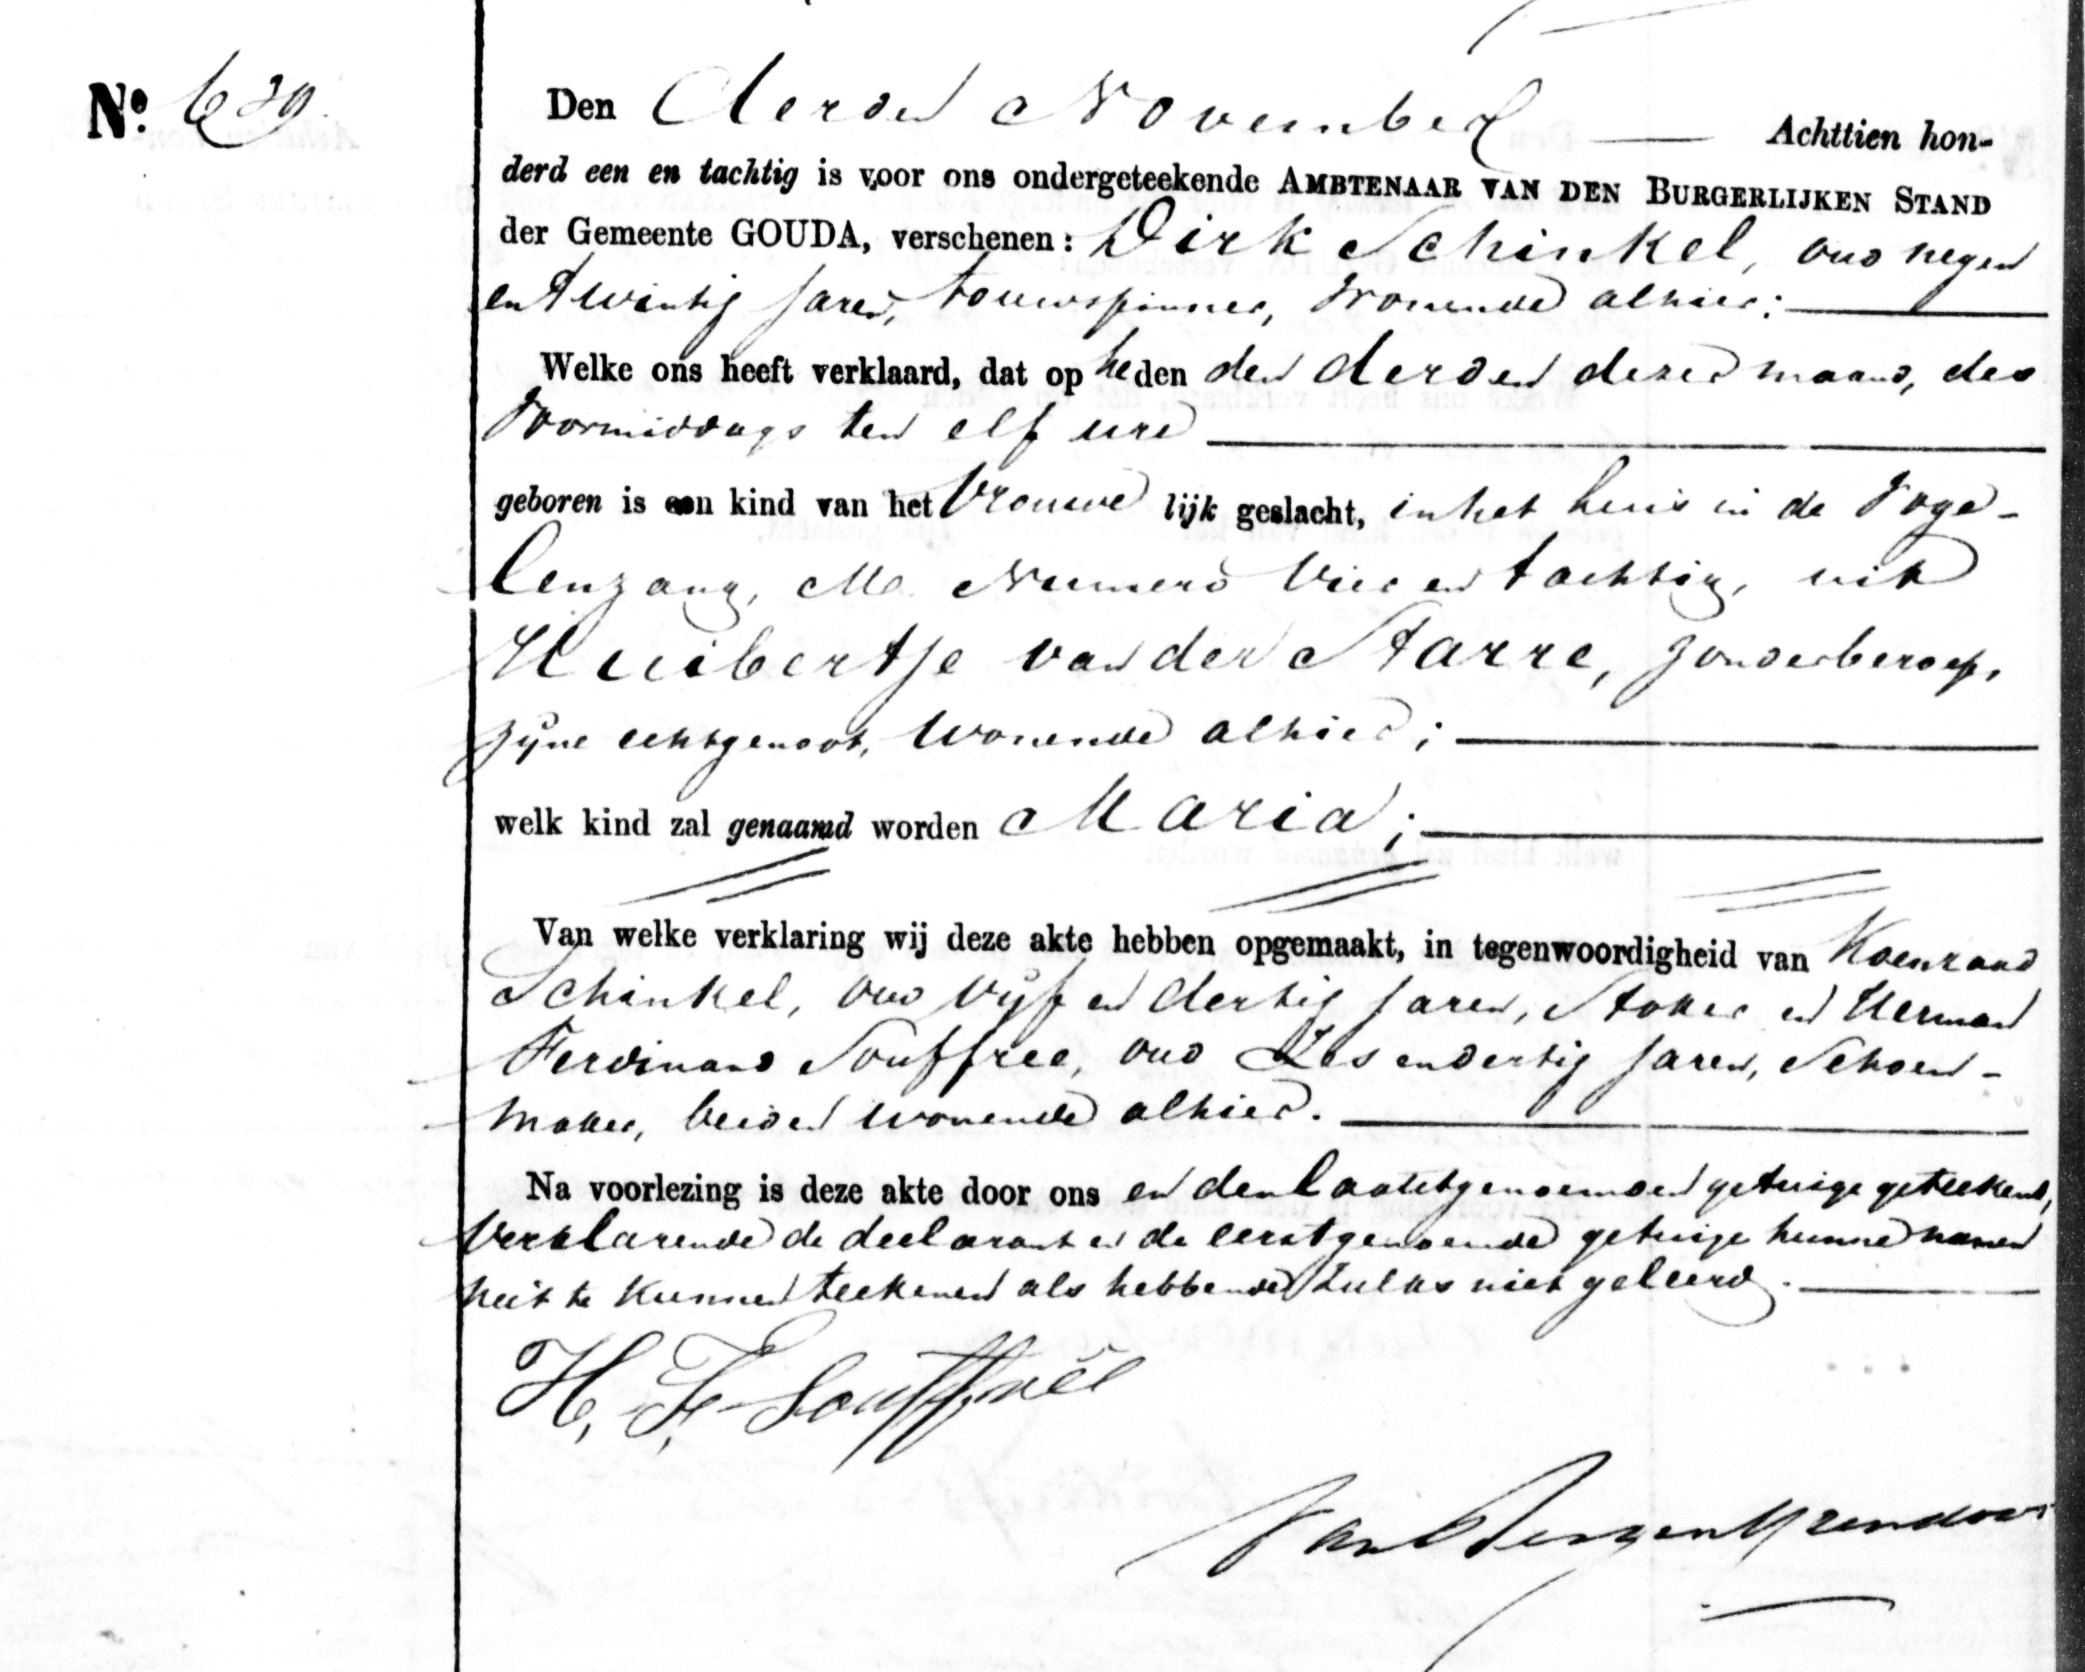 No. 639.
Den derden November Achttien hon-
derd een en tachtig is voor ons ondergeteekende AMBTENAAR VAN DEN BURGERLIJKEN STAND
der Gemeente GOUDA, verschenen: Dirk Schinkel, oud negen
en twintig jaren, touwspinner, wonende alhier;
Welke ons heeft verklaard, dat op heden den derden dezer maand, des
voormiddags ten elf ure
geboren is een kind van het vrouwe lijk geslacht, in het huis in de Voge-
lenzang, M. Numero vier en tachtig, uit
Huibertje van der Starre, zonder beroep,
zijne echtgenoot, wonende alhier;
welk kind zal genaamd worden Maria;
Van welke verklaring wij deze akte hebben opgemaakt, in tegenwoordigheid van Koenraad
Schinkel, oud vijf en dertig jaren, Stoker en Herman
Ferdinand Souffree, oud Zes en dertig jaren, Schoen-
maker, beiden wonende alhier.
Na voorlezing is deze akte door ons en den laatstgenoemden getuige geteekend,
verklarende de declarant en de eerstgenoemde getuige hunne namen
niet te kunnen teekenen als hebbende zulks niet geleerd.
H. F. Souffreë
Van Bergen IJzendoorn